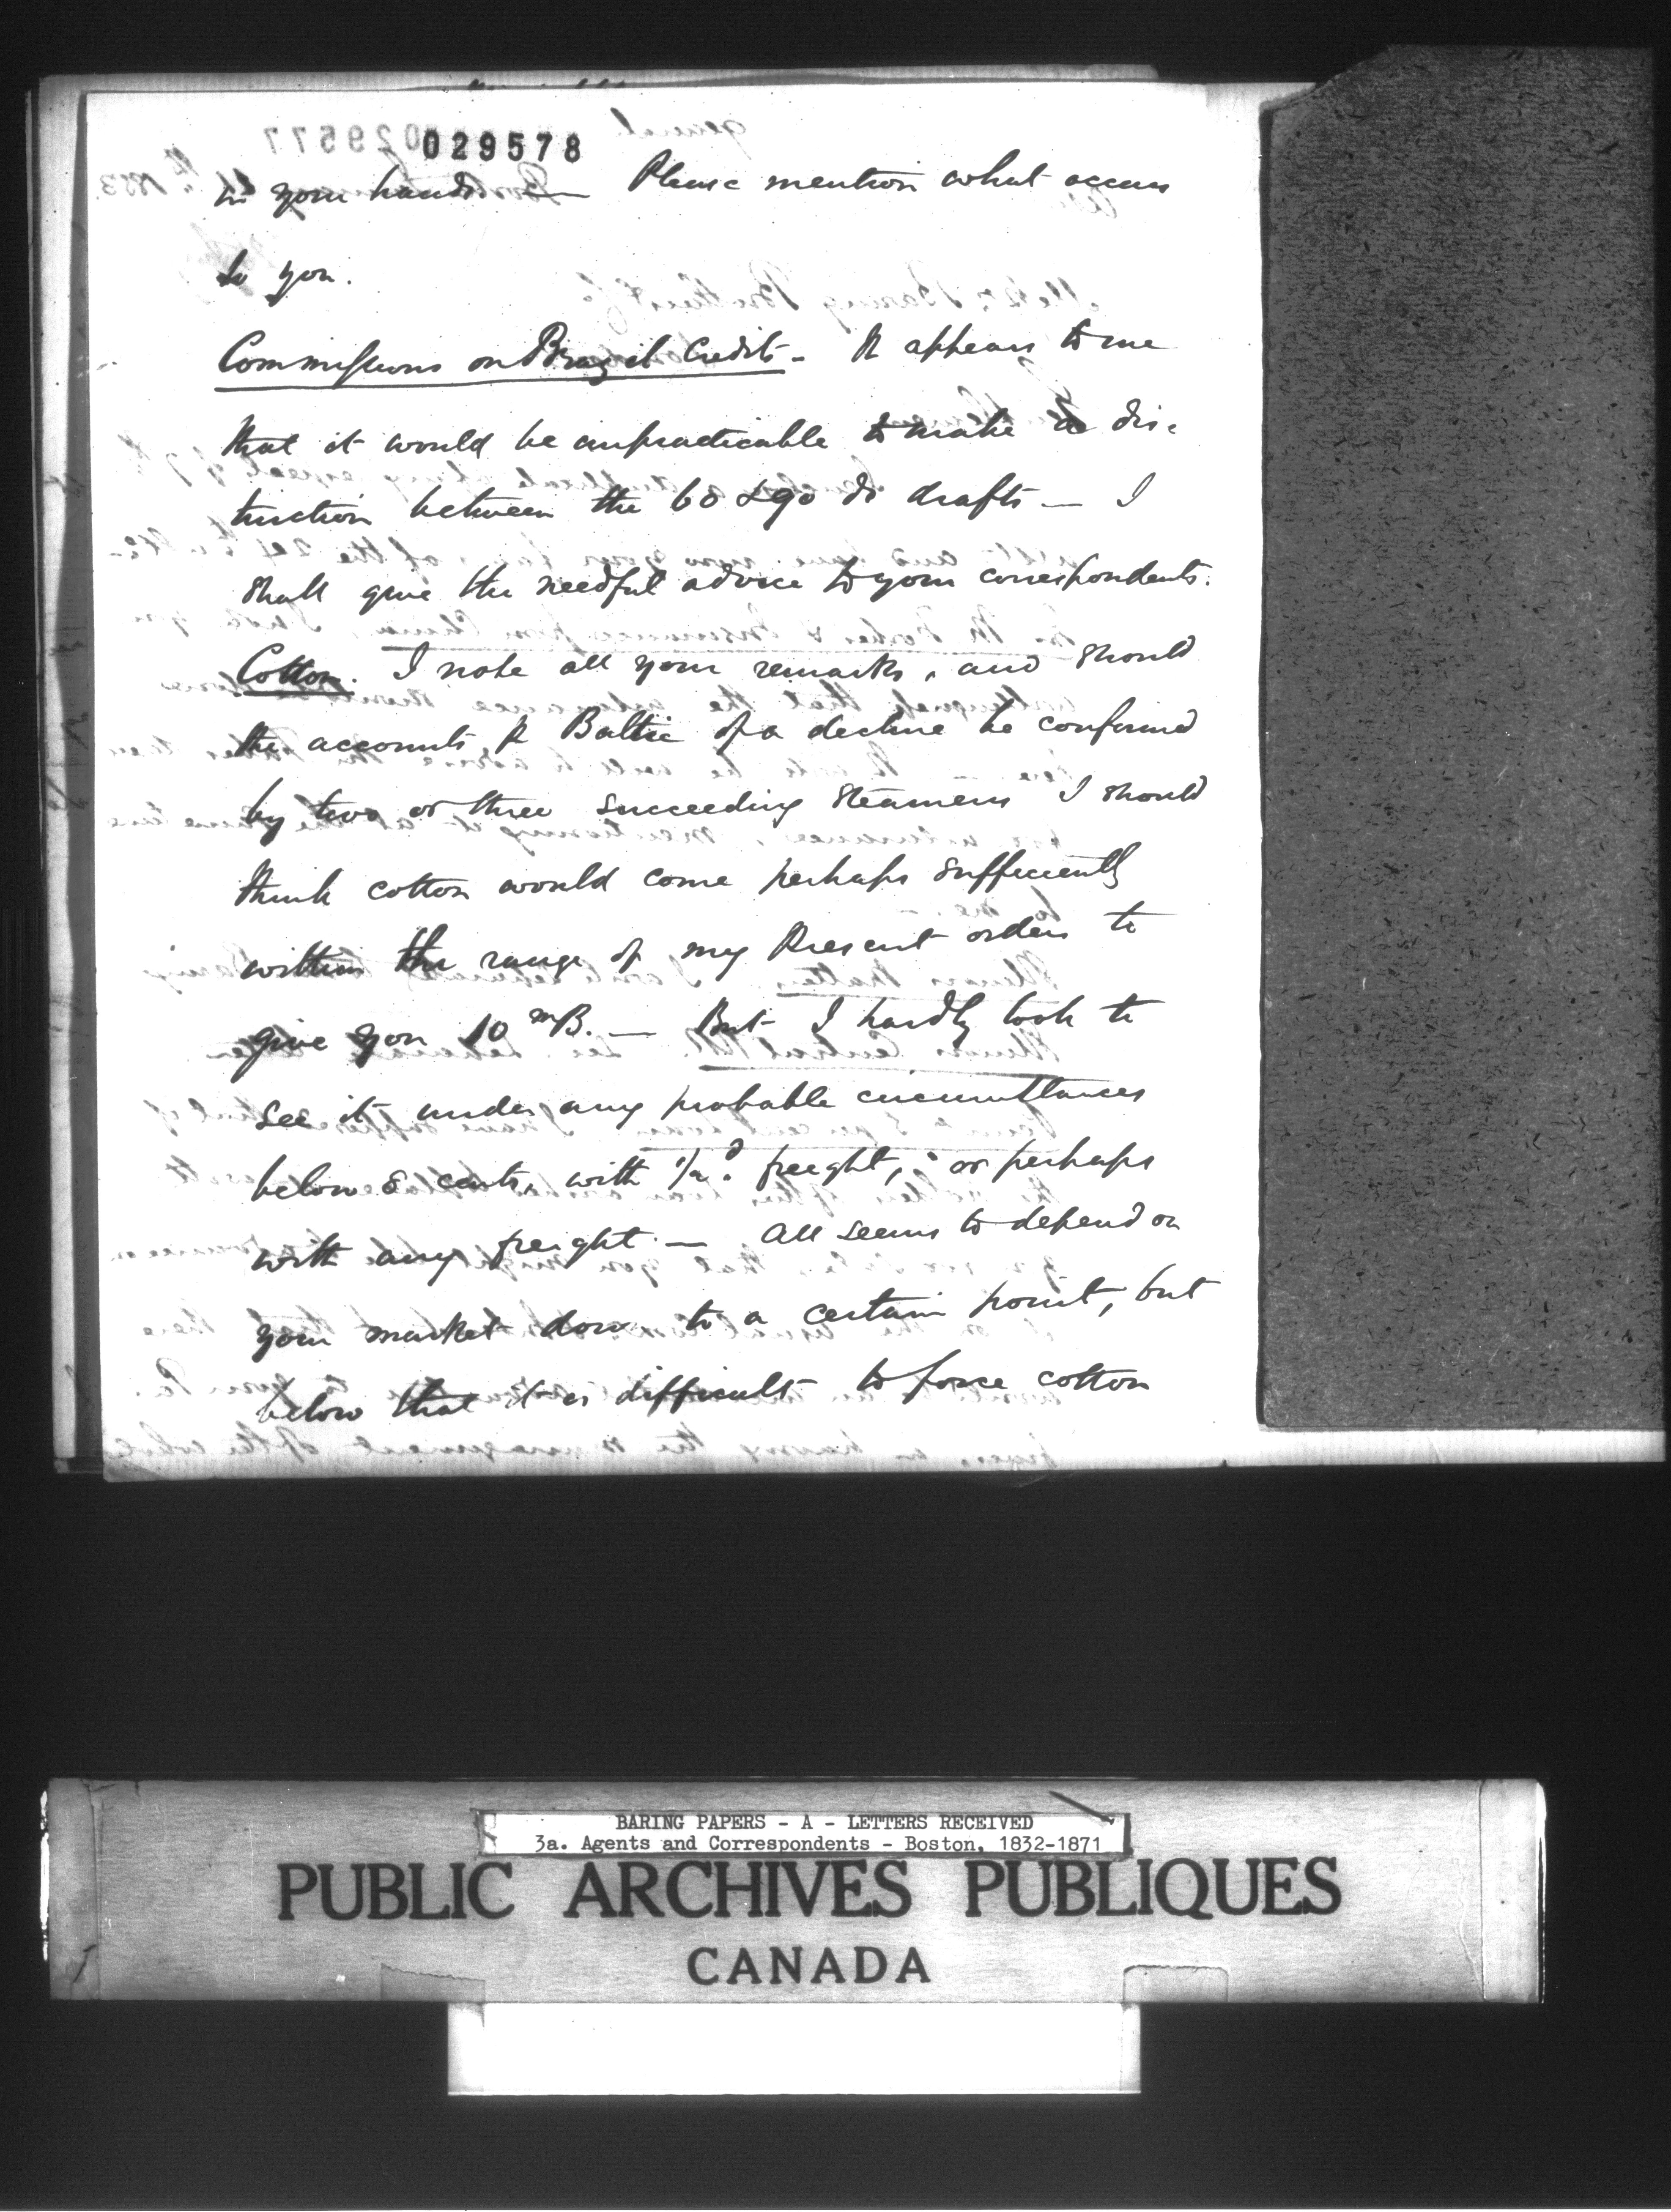 029578
in your hands — Please mention what occurs
to you.
Commissions on Brazil Credits - It appears to me
that it would be impracticable to make a dis-
tinction between the 60 & 90 ds drafts — I
shall give the needful advice to your correspondents.
Cotton. I note all your remarks, and should
the accounts p Baltic of a decline be confirmed
by two or three succeeding steamers I should
think cotton would come perhaps sufficiently
within the range of my present orders to
give you 10 mB. — But I hardly look to
see it under any probable circumstances
below 8 cents, with freight, or perhaps
with any freight. — All seems to depend on
your market down to a certain point, but
below that it is difficult to force cotton
BARING PAPERS - A - LETTERS RECEIVED
3a. Agents and Correspondents - Boston, 1832-1871
PUBLIC ARCHIVES PUBLIQUES
CANADA